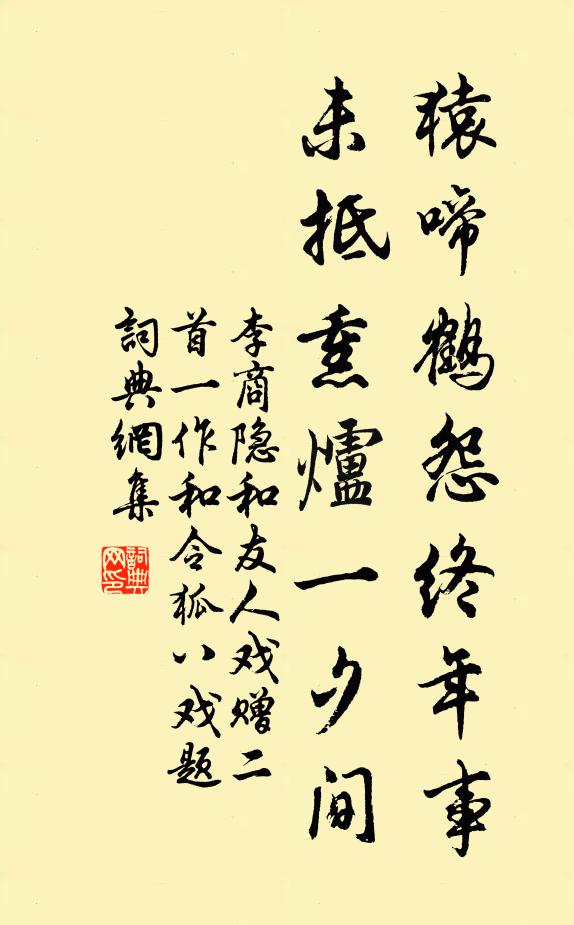 猿啼鹤怨终年事
未抵熏爐一夕间
李商隐和友人戏赠二
首一作和令狐八戏题
詞典網集
詞典
网印